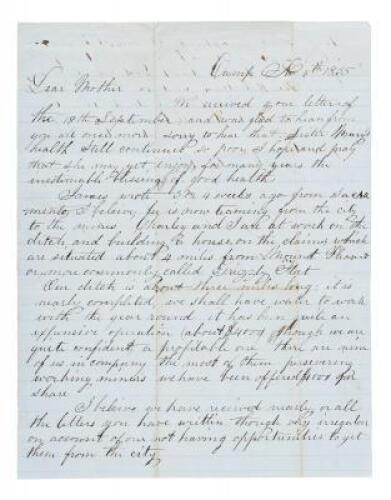 Camp 8th 1855
Dear Mother
We received your letter of
the 18th September and was glad to hear from
you are once more sorry to hear that Sister Mary's
health still continues so poor I hope and pray
that she may yet enjoy for many years the
inestimable blessing of good health
James wrote 3 or 4 weeks ago from Sacra
mento, I beleive he is now teaming from the city
to the mines Charley and I are at work on the
ditch and building a house on the claims which
are situated about 4 miles from Mount Pleasant
or more commonly called Grizzly Flat
Our ditch is about three miles long; it is
nearly completed, we shall have water to work
with the year round it has been quite an
expensive operation (about $4000) though we are
quite confident a profitable one there are nine
of us in company the most of them persevering
working miners we have been offered $1000 for
share
I beleive we have received nearly or all
the letters you have written though very irregular
on account of our not having opportunities to get
them from the city